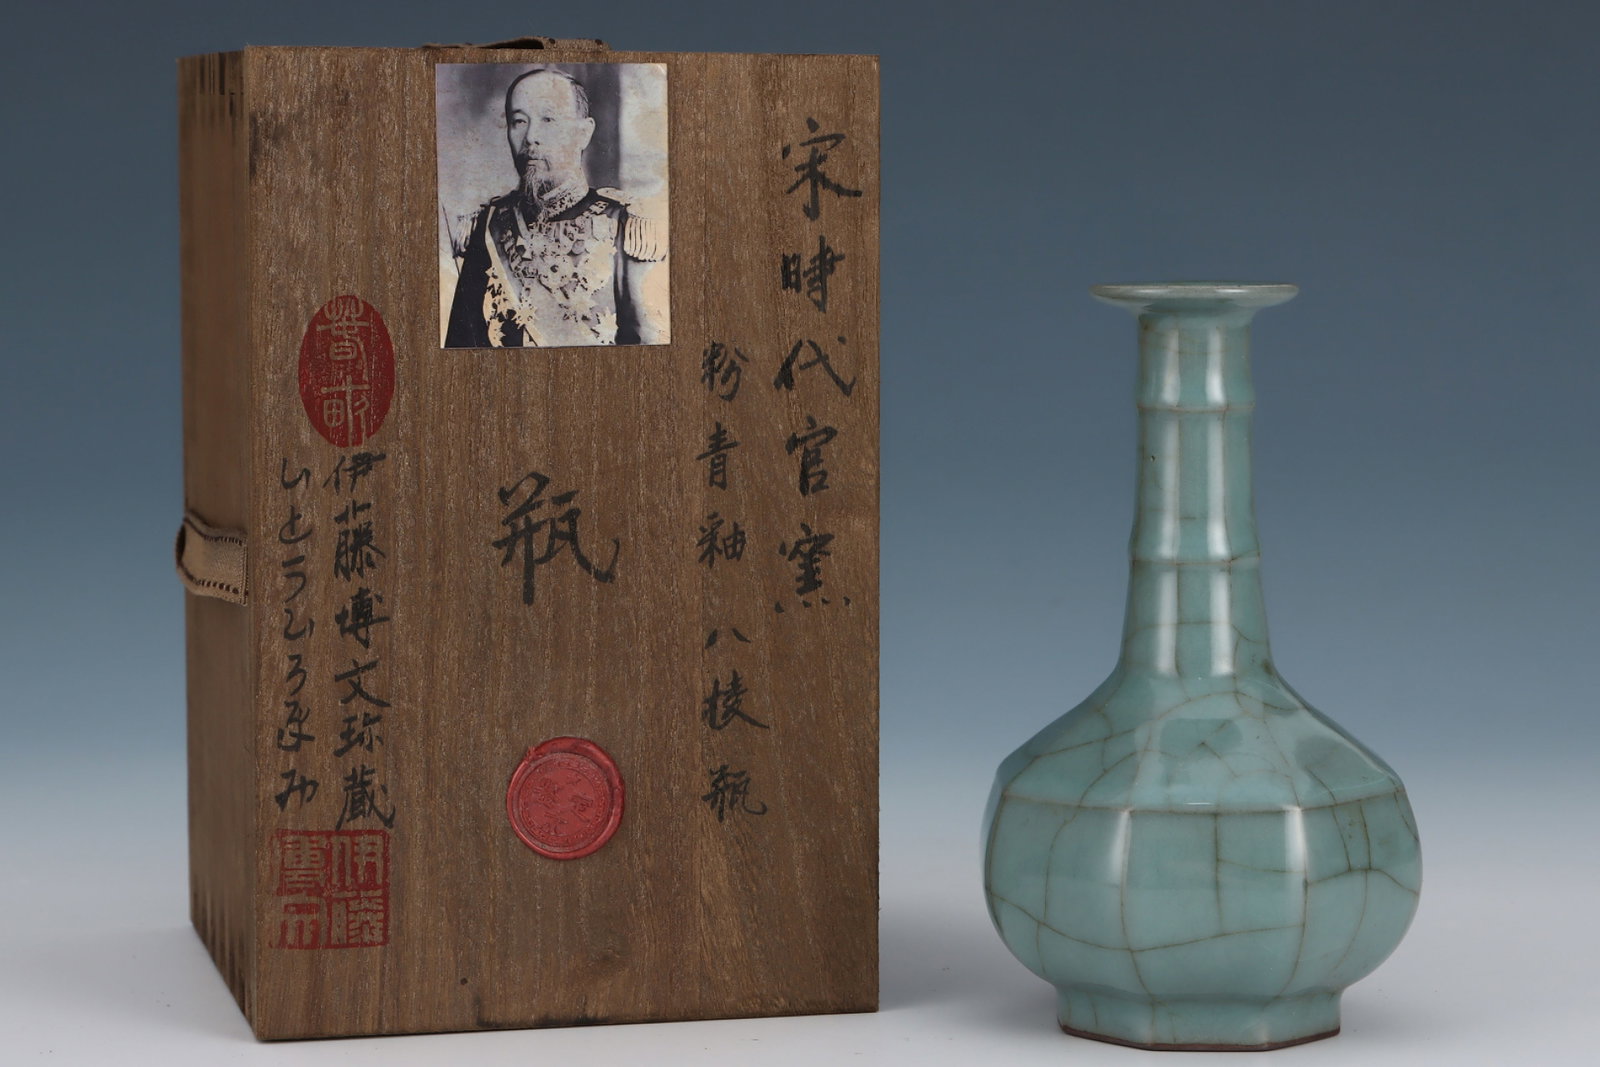 宋時代官窯
粉青釉八棱瓶
瓶
春畝
伊藤博文珎藏
いとうひろぶみ
伊藤博文